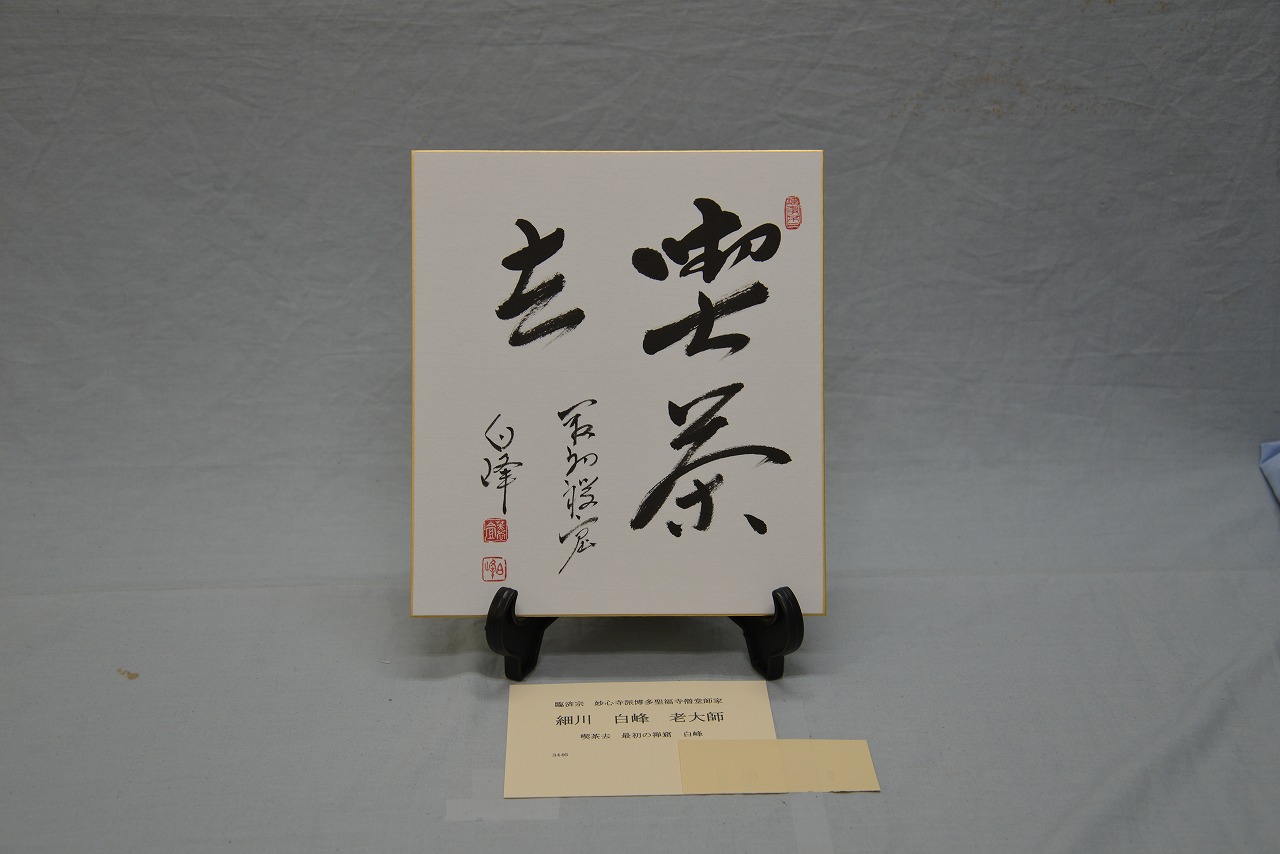 喫茶
去
最初禅窟
白峰
白峰
臨済宗　妙心寺派博多聖福寺僧堂師家
細川　白峰　老大師
喫茶去　最初の禅窟　白峰
3446